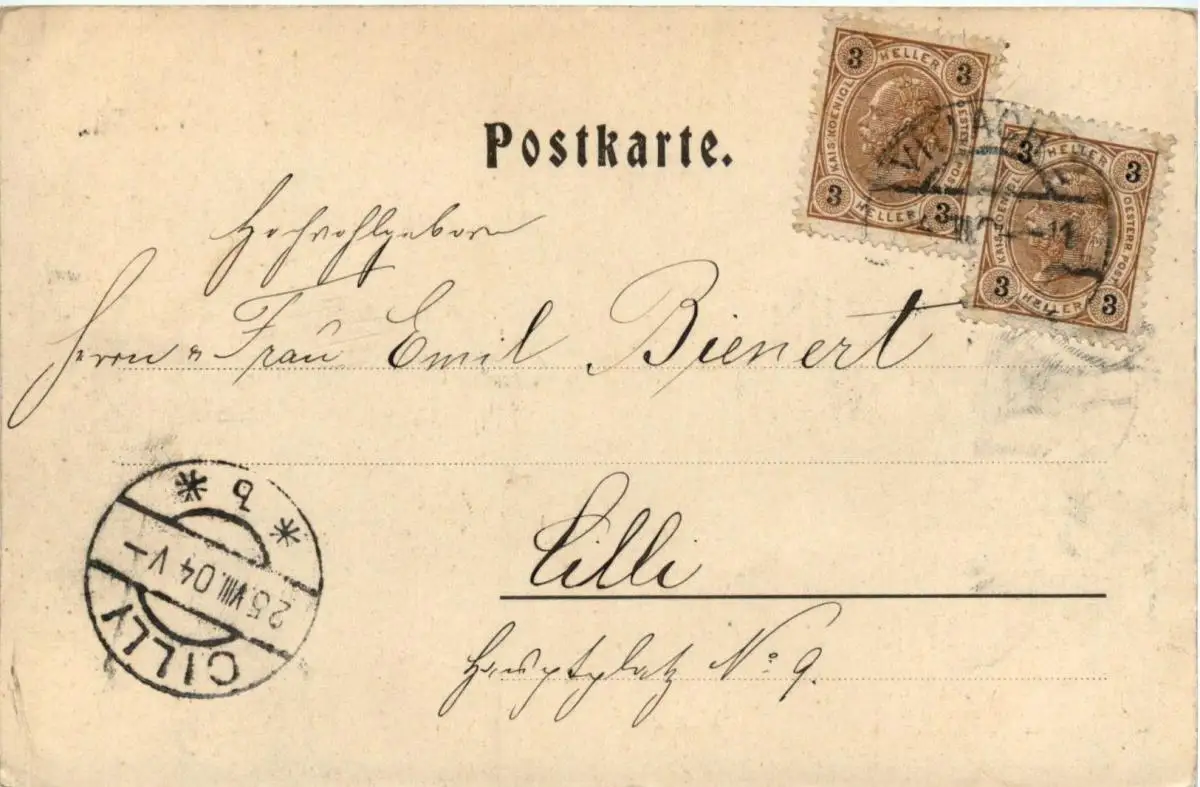 Postkarte.
3 HELLER 3
KAIS. KOENIGL. OESTERR. POST
3 HELLER 3
3 HELLER 3
KAIS. KOENIGL. OESTERR. POST
3 HELLER 3
VILLACH
11
Hochwohlgeboren
Herrn u Frau Emil Bienert
Cilli
Hauptplatz No 9.
* b *
25.VIII.04 V-
CILLY